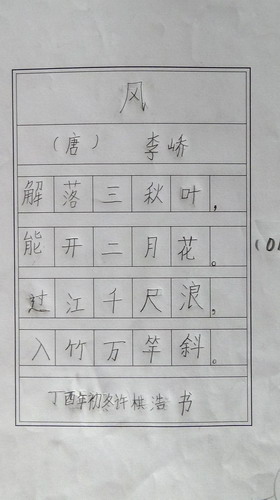 风
（唐） 李峤
解落三秋叶，
能开二月花。
过江千尺浪，
入竹万竿斜。
丁酉年初冬许棋浩书